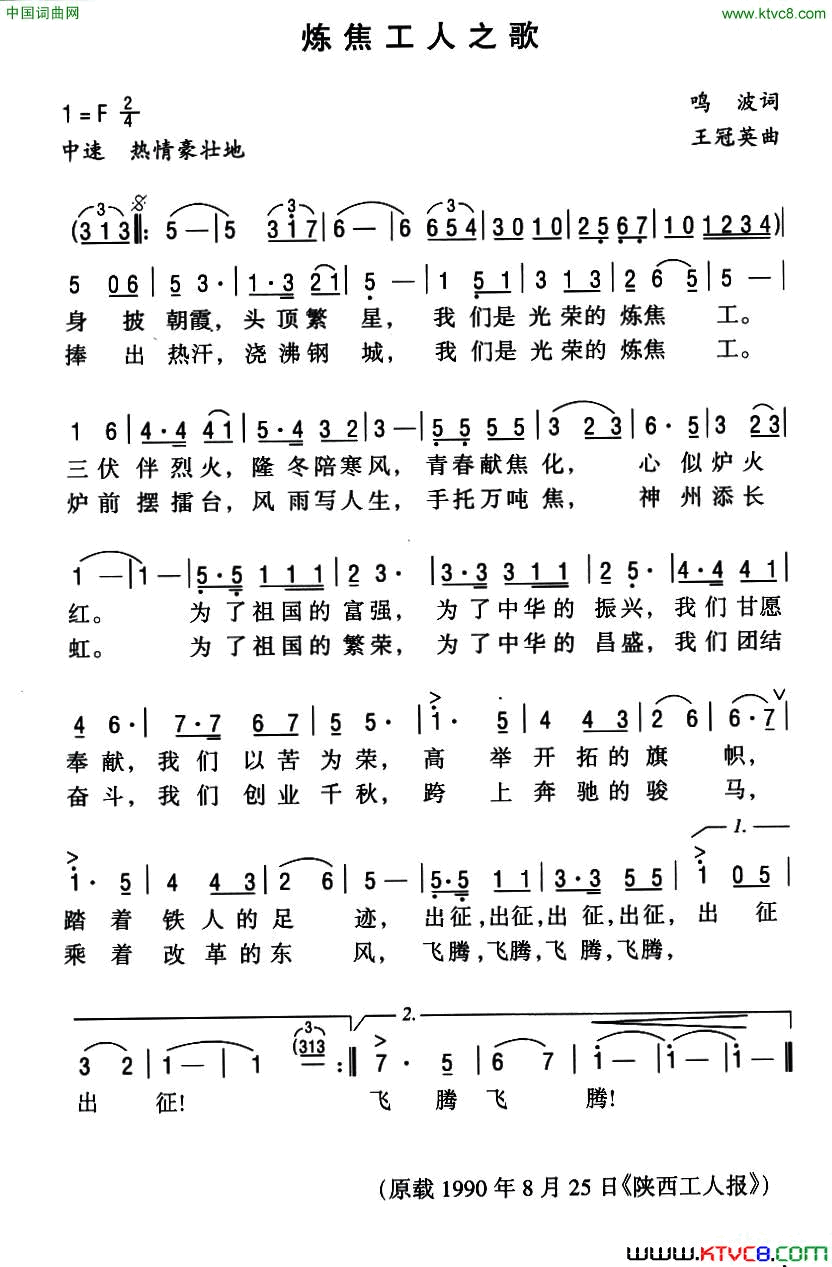 中国词曲网
www.ktvc8.com
炼焦工人之歌
1=F 2/4
鸣 波词
中速 热情豪壮地
王冠英曲
(3 1 3 ‖: 5 — | 5 3 1 7 | 6 — | 6 6 5 4 | 3 0 1 0 | 2 5 6 7 | 1 0 1 2 3 4) |
5 0 6 | 5 3 · | 1 · 3 2 1 | 5 — | 1 5 1 | 3 1 3 | 2 6 5 | 5 — |
身 披 朝霞, 头顶繁 星, 我 们是 光荣的 炼焦 工。
捧 出 热汗, 浇沸钢 城, 我 们是 光荣的 炼焦 工。
1 6 | 4 · 4 4 1 | 5 · 4 3 2 | 3 — | 5 5 5 5 | 3 2 3 | 6 · 5 | 3 2 3 |
三伏伴烈火, 隆冬陪寒风, 青春献焦化, 心似炉火
炉前摆擂台, 风雨写人生, 手托万吨焦, 神州添长
1 — | 1 — | 5 · 5 1 1 1 | 2 3 · | 3 · 3 3 1 1 | 2 5 · | 4 · 4 4 1 |
红。 为了祖国的富强, 为了中华的 振兴, 我们甘愿
虹。 为了祖国的繁荣, 为了中华的 昌盛, 我们团结
4 6 · | 7 · 7 6 7 | 5 5 · | 1 · 5 | 4 4 3 | 2 6 | 6 · 7 |
奉献, 我们 以苦为荣, 高 举开拓的旗 帜,
奋斗, 我们 创业千秋, 跨 上奔驰的骏 马,
1.
1 · 5 | 4 4 3 | 2 6 | 5 — | 5 · 5 1 1 | 3 · 3 5 5 | 1 0 5 |
踏着铁人的足 迹, 出征,出征,出征,出征, 出 征
乘着改革的东 风, 飞腾,飞腾,飞腾,飞腾,
2.
3 2 | 1 — | 1 (3 1 3 :‖ 7 · 5 | 6 7 | 1 — | 1 — ‖
出 征! 飞 腾飞 腾!
(原载1990年8月25日《陕西工人报》)
www.KTVC8.com